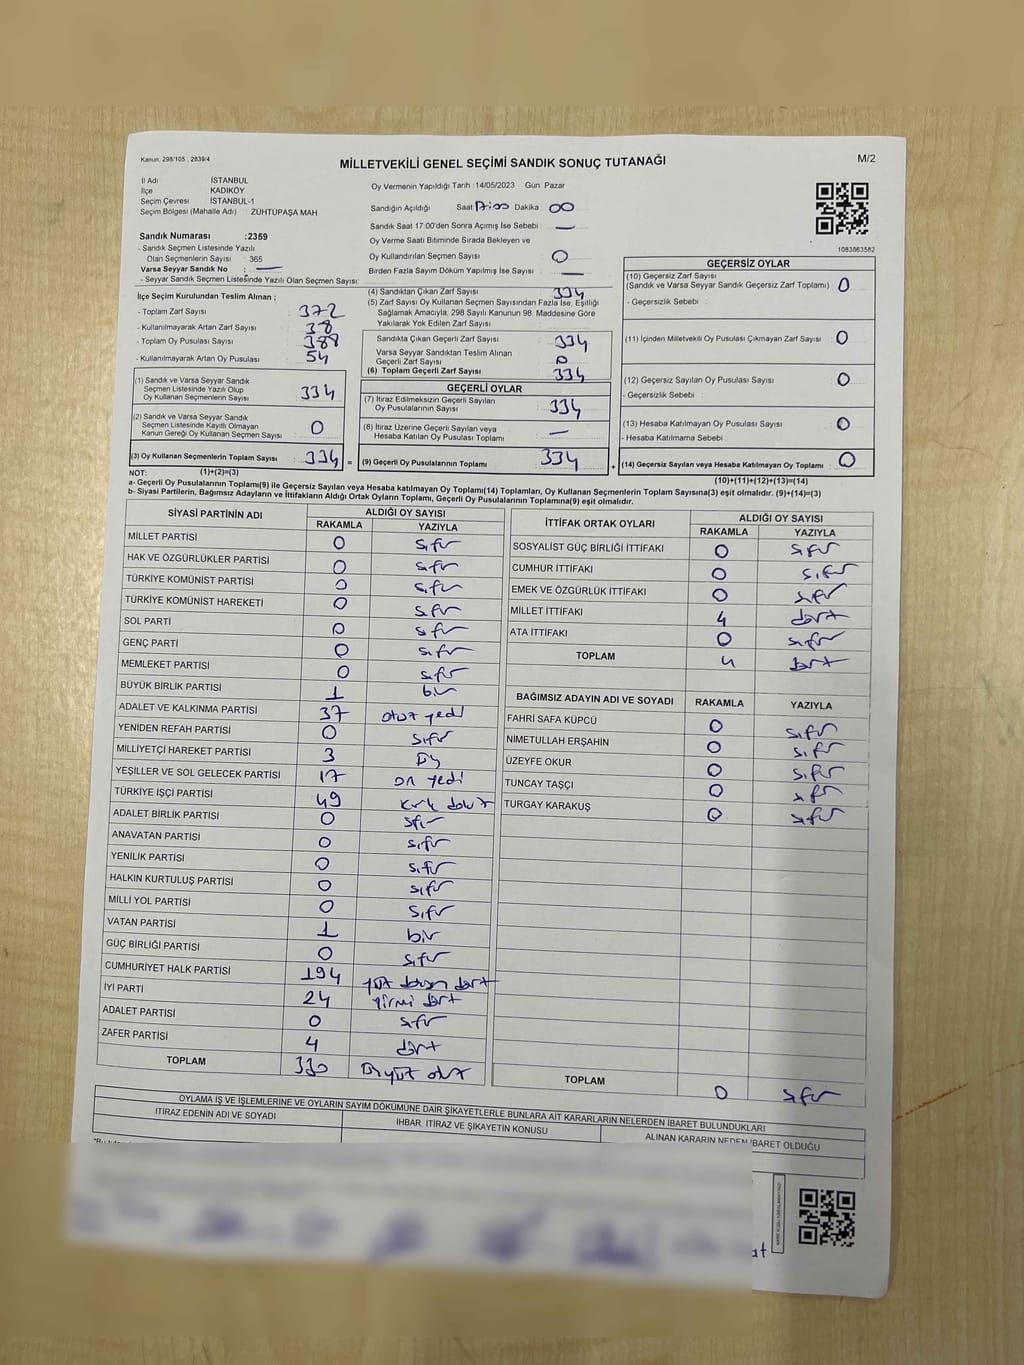 Kanun: 298/105 , 2839/4
MİLLETVEKİLİ GENEL SEÇİMİ SANDIK SONUÇ TUTANAĞI
M/2
İl Adı İSTANBUL
İlçe KADIKÖY
Seçim Çevresi İSTANBUL-1
Seçim Bölgesi (Mahalle Adı) : ZÜHTÜPAŞA MAH.
Sandık Numarası :2359
- Sandık Seçmen Listesinde Yazılı
Olan Seçmenlerin Sayısı : 365
Varsa Seyyar Sandık No : —
- Seyyar Sandık Seçmen Listesinde Yazılı Olan Seçmen Sayısı:
Oy Vermenin Yapıldığı Tarih :14/05/2023 Gün: Pazar
Sandığın Açıldığı Saat Dakika : 00
Sandık Saat 17:00'den Sonra Açımış İse Sebebi : —
Oy Verme Saati Bitiminde Sırada Bekleyen ve
Oy Kullandırılan Seçmen Sayısı : 0
Birden Fazla Sayım Döküm Yapılmış İse Sayısı : —
1083863582
İlçe Seçim Kurulundan Teslim Alınan ;
- Toplam Zarf Sayısı : 372
- Kullanılmayarak Artan Zarf Sayısı : 38
- Toplam Oy Pusulası Sayısı : 388
- Kullanılmayarak Artan Oy Pusulası : 54
(1) Sandık ve Varsa Seyyar Sandık
Seçmen Listesinde Yazılı Olup
Oy Kullanan Seçmenlerin Sayısı : 334
(2) Sandık ve Varsa Seyyar Sandık
Seçmen Listesinde Kayıtlı Olmayan
Kanun Gereği Oy Kullanan Seçmen Sayısı : 0
(3) Oy Kullanan Seçmenlerin Toplam Sayısı : 334 =
(4) Sandıktan Çıkan Zarf Sayısı : 334
(5) Zarf Sayısı Oy Kullanan Seçmen Sayısından Fazla İse, Eşitliği
Sağlamak Amacıyla, 298 Sayılı Kanunun 98. Maddesine Göre
Yakılarak Yok Edilen Zarf Sayısı :
Sandıkta Çıkan Geçerli Zarf Sayısı : 334
Varsa Seyyar Sandıktan Teslim Alınan
Geçerli Zarf Sayısı : 0
(6) Toplam Geçerli Zarf Sayısı : 334
GEÇERLİ OYLAR
(7) İtiraz Edilmeksizin Geçerli Sayılan
Oy Pusulalarının Sayısı : 334
(8) İtiraz Üzerine Geçerli Sayılan veya
Hesaba Katılan Oy Pusulası Toplamı : —
(9) Geçerli Oy Pusulalarının Toplamı : 334 +
GEÇERSİZ OYLAR
(10) Geçersiz Zarf Sayısı
(Sandık ve Varsa Seyyar Sandık Geçersiz Zarf Toplamı) : 0
- Geçersizlik Sebebi :
(11) İçinden Milletvekili Oy Pusulası Çıkmayan Zarf Sayısı : 0
(12) Geçersiz Sayılan Oy Pusulası Sayısı : 0
- Geçersizlik Sebebi :
(13) Hesaba Katılmayan Oy Pusulası Sayısı : 0
- Hesaba Katılmama Sebebi :
(14) Geçersiz Sayılan veya Hesaba Katılmayan Oy Toplamı : 0
NOT: (1)+(2)=(3)
(10)+(11)+(12)+(13)=(14)
a- Geçerli Oy Pusulalarının Toplamı(9) ile Geçersiz Sayılan veya Hesaba katılmayan Oy Toplamı(14) Toplamları, Oy Kullanan Seçmenlerin Toplam Sayısına(3) eşit olmalıdır. (9)+(14)=(3)
b- Siyasi Partilerin, Bağımsız Adayların ve İttifakların Aldığı Ortak Oyların Toplamı, Geçerli Oy Pusulalarının Toplamına(9) eşit olmalıdır.
SİYASİ PARTİNİN ADI ALDIĞI OY SAYISI
RAKAMLA YAZIYLA
MİLLET PARTİSİ 0 sıfır
HAK VE ÖZGÜRLÜKLER PARTİSİ 0 sıfır
TÜRKİYE KOMÜNİST PARTİSİ 0 sıfır
TÜRKİYE KOMÜNİST HAREKETİ 0 sıfır
SOL PARTİ 0 sıfır
GENÇ PARTİ 0 sıfır
MEMLEKET PARTİSİ 0 sıfır
BÜYÜK BİRLİK PARTİSİ 1 bir
ADALET VE KALKINMA PARTİSİ 37 otuz yedi
YENİDEN REFAH PARTİSİ 0 sıfır
MİLLİYETÇİ HAREKET PARTİSİ 3 üç
YEŞİLLER VE SOL GELECEK PARTİSİ 17 on yedi
TÜRKİYE İŞÇİ PARTİSİ 49 kırk dokuz
ADALET BİRLİK PARTİSİ 0 sıfır
ANAVATAN PARTİSİ 0 sıfır
YENİLİK PARTİSİ 0 sıfır
HALKIN KURTULUŞ PARTİSİ 0 sıfır
MİLLİ YOL PARTİSİ 0 sıfır
VATAN PARTİSİ 1 bir
GÜÇ BİRLİĞİ PARTİSİ 0 sıfır
CUMHURİYET HALK PARTİSİ 194 yüz doksan dört
İYİ PARTİ 24 yirmi dört
ADALET PARTİSİ 0 sıfır
ZAFER PARTİSİ 4 dört
TOPLAM 330 üçyüz otuz
İTTİFAK ORTAK OYLARI ALDIĞI OY SAYISI
RAKAMLA YAZIYLA
SOSYALİST GÜÇ BİRLİĞİ İTTİFAKI 0 sıfır
CUMHUR İTTİFAKI 0 sıfır
EMEK VE ÖZGÜRLÜK İTTİFAKI 0 sıfır
MİLLET İTTİFAKI 4 dört
ATA İTTİFAKI 0 sıfır
TOPLAM 4 dört
BAĞIMSIZ ADAYIN ADI VE SOYADI RAKAMLA YAZIYLA
FAHRİ SAFA KÜPCÜ 0 sıfır
NİMETULLAH ERŞAHİN 0 sıfır
ÜZEYFE OKUR 0 sıfır
TUNCAY TAŞÇI 0 sıfır
TURGAY KARAKUŞ 0 sıfır
TOPLAM 0 sıfır
OYLAMA İŞ VE İŞLEMLERİNE VE OYLARIN SAYIM DÖKÜMÜNE DAİR ŞİKAYETLERLE BUNLARA AİT KARARLARIN NELERDEN İBARET BULUNDUKLARI
İTİRAZ EDENİN ADI VE SOYADI İHBAR, İTİRAZ VE ŞİKAYETİN KONUSU ALINAN KARARIN NEDEN İBARET OLDUĞU
at